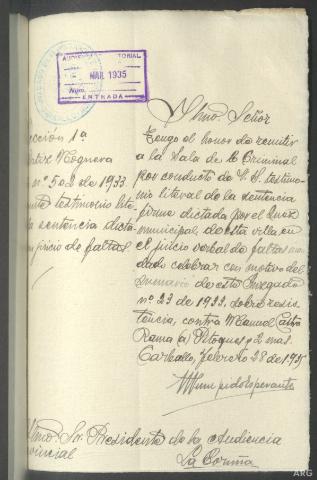 AUDIENCIA TERRITORIAL
MAR 1935
ENTRADA
Ilmo. Señor
Sección 1ª
Noguera
nº 502 de 1933
testimonio lite
la sentencia dicta
juicio de faltas
Tengo el honor de remitir
a la Sala de lo Criminal
por conducto de V. S. testimo
nio literal de la sentencia
firme dictada por el Juez
municipal de esta villa en
el juicio verbal de faltas man
dado celebrar con motivo del
sumario de este Juzgado
nº 23 de 1933, sobre resis
tencia, contra Manuel Castro
Rama (a) Pitoques y 2 mas.
Carballo, febrero 28 de 1935
Ilmo. Sr. Presidente de la Audiencia
provincial
La Coruña
ARG